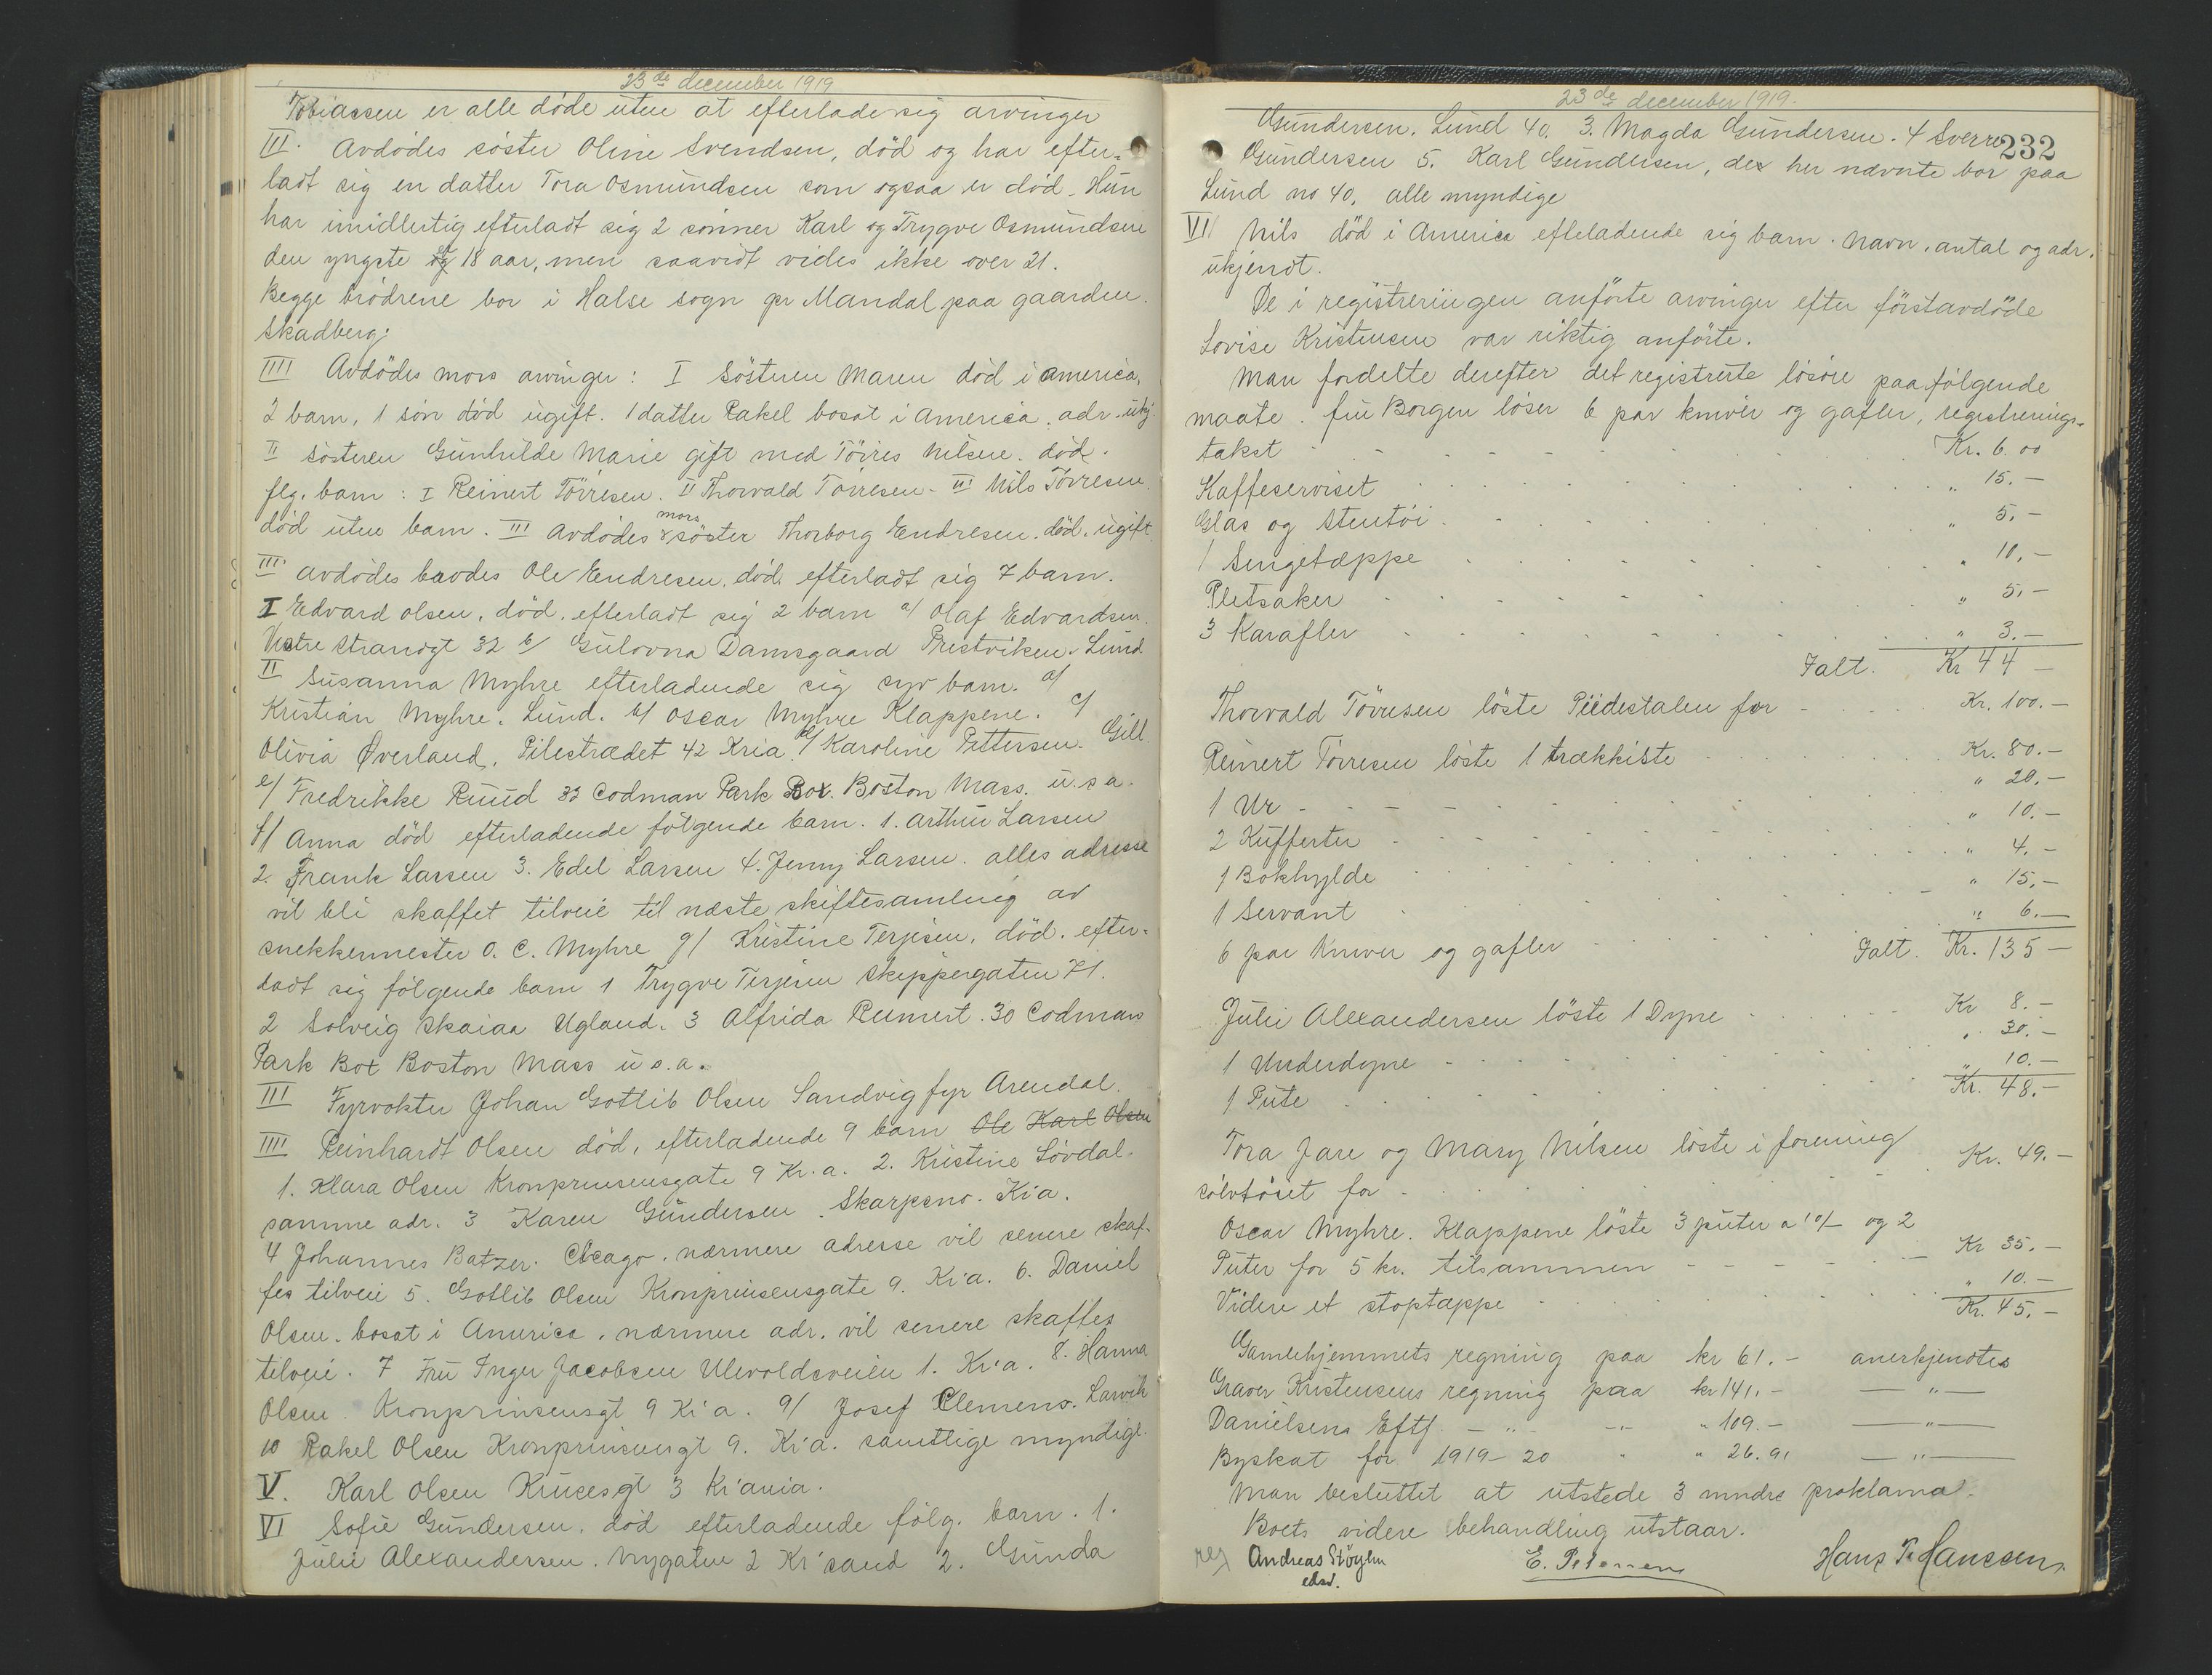 23de december 1919
Tobiassen er alle döde uten at efterlade sig arvinger
III. Avdödes söster Oline Svendsen, död og har efter-
ladt sig en datter Tora Osmundsen som ogsaa er död. Hun
har imidlertig efterladt sig 2 sönner Karl og Trygve Osmundsen
den yngste 18 aar, men saavidt vides ikke over 21.
Begge brödrene bor i Halse sogn pr Mandal paa gaarden
Skadberg.
IIII Avdödes mors arvinger: I Söstren Maren död i America,
2 barn, 1 sön död ugift. 1 datter Rakel bosat i America. adr. ukj.
II Sösteren Gunhilde Marie gift med Törris Nilsen. död.
flg. barn: I Reinert Törresen. II Thorvald Törresen. III Nils Törresen.
död uten barn. III Avdödes mors söster Thorborg Endresen. död. ugift.
IIII avdödes brodes Ole Endresen, död. efterladt sig 7 barn.
I Edvard Olsen, död. efterladt sig 2 barn a/ Olaf Edvardsen.
Vestre Strandgt 32 b/ Gulovna Damsgaard Prestviken. Lund
II Susanna Myhre efterladende sig syv barn. a/
Kristian Myhre. Lund. b/ Oscar Myhre Klappene. c/
Olivia Øverland, Pilestrædet 42 Kria. d/ Karoline Pettersen. Gill.
e/ Fredrikke Ruud 33 Codman Park Box. Boston Mass. u.s a.
f/ Anna död efterladende fölgende barn. 1. Arthur Larsen
2. Frank Larsen 3. Edel Larsen 4. Jenny Larsen. alles adresse
vil bli skaffet tilveie til næste skiftesamling av
snekkermester O. C. Myhre g/ Kristine Terjesen, död. efter-
ladt sig fölgende barn 1 Trygve Terjesen Skippergaten 71.
2 Solveig Skaiaa Ugland. 3 Alfrida Reimert. 30 Codman
Park Box Boston Mass u.s.a.
III Fyrvokter Johan Gotlib Olsen Sandvigfyr Arendal.
IIII Reinhardt Olsen död, efterladende 9 barn Ole Karl Olsen
1. Klara Olsen Kronprinsensgate 9 Kr.a. 2. Kristine Lövdal.
samme adr. 3 Karen Gundersen. Skarpsno. Kia.
4 Johannes Batzer. Chicago. nærmere adresse vil senere skaf-
fes tilveie 5. Gotlib Olsen Kronprinsensgate 9. Kr'a. 6. Daniel
Olsen. bosat i America. nærmere adr. vil senere skaffes
tilveie. 7 Fru Inger Jacobsen Ullevoldsveien 1. Kr'a. 8. Hanna
Olsen. Kronprinsensgt 9 Ki'a. 9/ Josef Clemens. Larvik
10 Rakel Olsen Kronprinsensgt 9. Kr'a. samtlige myndige.
V. Karl Olsen Krusesgt 3 Kr'ania.
VI Sofie Gundersen. död efterladende fölg. barn. 1.
Julie Alexandersen. Nygaten 2 Kr'sand 2. Gunda
23de december 1919.
232
Gundersen. Lund 40. 3. Magda Gundersen. 4 Sverre
Gundersen 5. Karl Gundersen, de her nævnte bor paa
Lund no 40. alle myndige
VII Nils död i America efterladende sig barn. navn, antal og adr.
ukjendt.
De i registreringen anförte arvinger efter förstavdöde
Lovise Kristensen var riktig anförte.
Man fordelte derefter det registrerte lösöre paa fölgende
maate. fru Borgen löser 6 par kniver og gafler, registrerings-
takst Kr. 6.00
Kaffeserviset " 15.-
Glas og Stentöi " 5.-
1 Sengetæppe " 10.-
Pletsaker " 5.-
3 Karafler " 3.-
Ialt. Kr 44 -
Thorvald Törresen löste Piedestalen for Kr. 100.-
Reinert Törresen löste 1 trækkiste Kr. 80.-
1 Ur " 20.-
2 Kufferter " 10.-
1 Bokhylde " 4.-
1 Servant " 15.-
6 par Kniver og gafler " 6.-
Ialt. Kr. 135 -
Julie Alexandersen löste 1 Dyne Kr 8.-
1 Underdyne " 30.-
1 Pute " 10.-
Kr. 48.-
Tora Jare og Mary Nilsen löste i forening
sölvtöiet for Kr. 49.-
Oscar Myhre. Klappene löste 3 puter a 10/- og 2
Puter for 5 kr. tilsammen Kr 35.-
Videre et stoptæppe " 10.-
Kr. 45.-
Gamlehjemmets regning paa kr 61.- anerkjendtes
Graver Kristensens regning paa kr 141.- — " —
Danielsens Eftf. - " - - " - " 109.- — " —
Byskat for 1919-20 " " 26.91 — " —
Man besluttet at utstede 3 mndrs proklama.
Boets videre behandling utstaar.
reg Andreas Stöylen E. Petersen Hans P. Hanssen.
edsv.